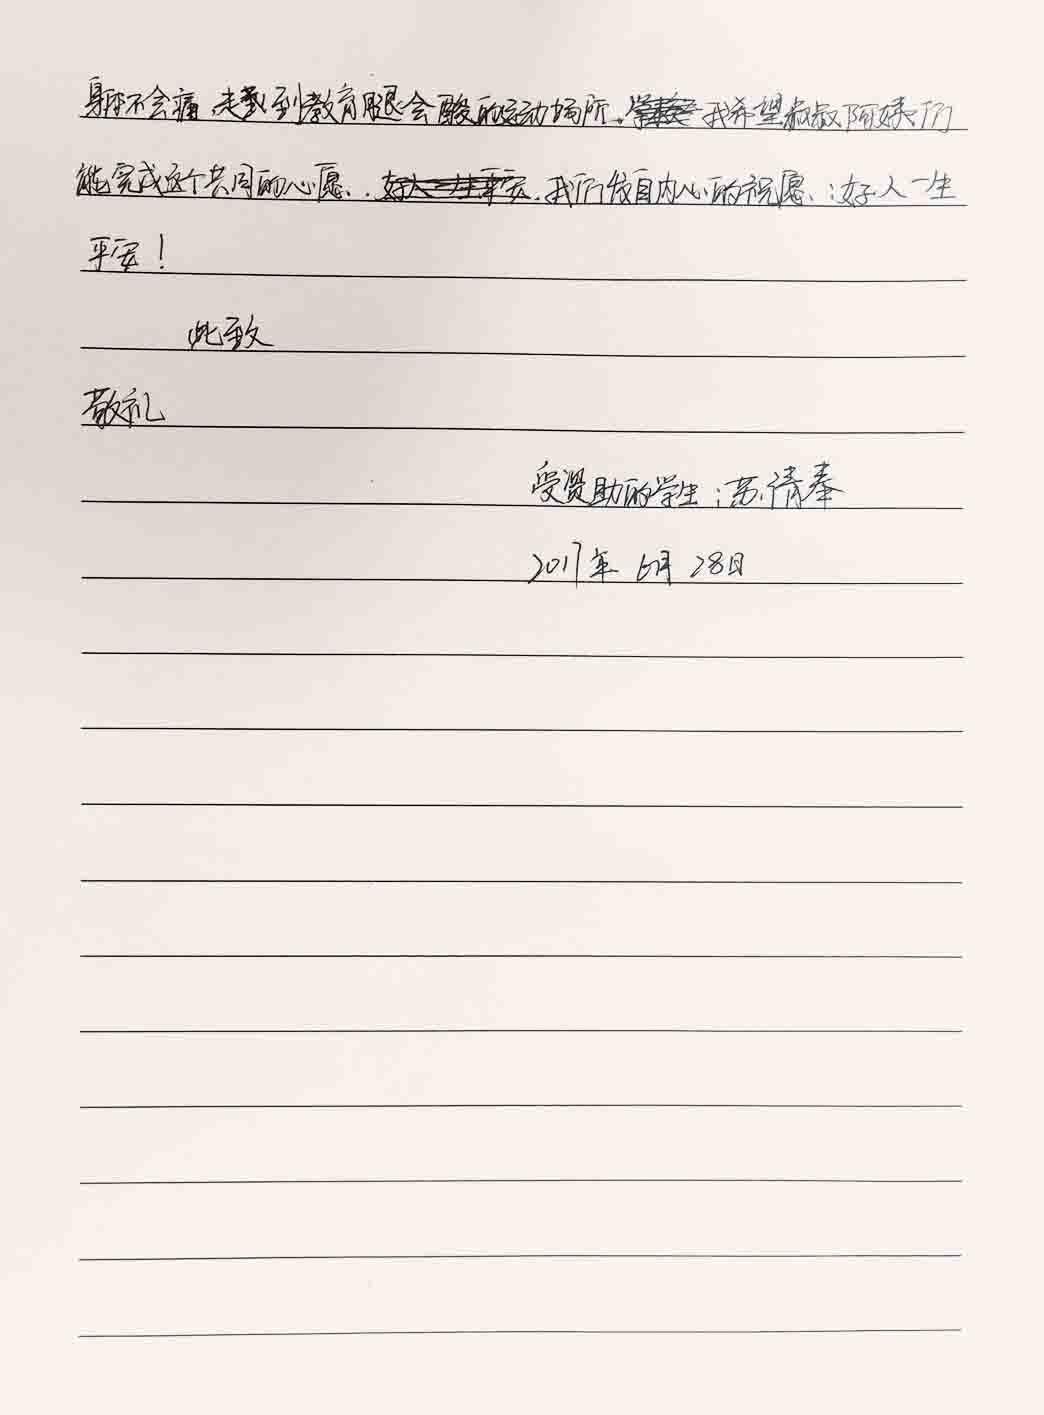 身体不会痛,走到教育腿会酸的运动场所。我希望叔叔阿姨们
能完成这个共同的心愿、.好人一生平安.我们发自内心的祝愿、:好人一生
平安!
此致
敬礼
受资助的学生:苏清奉
2017年 6月 28日